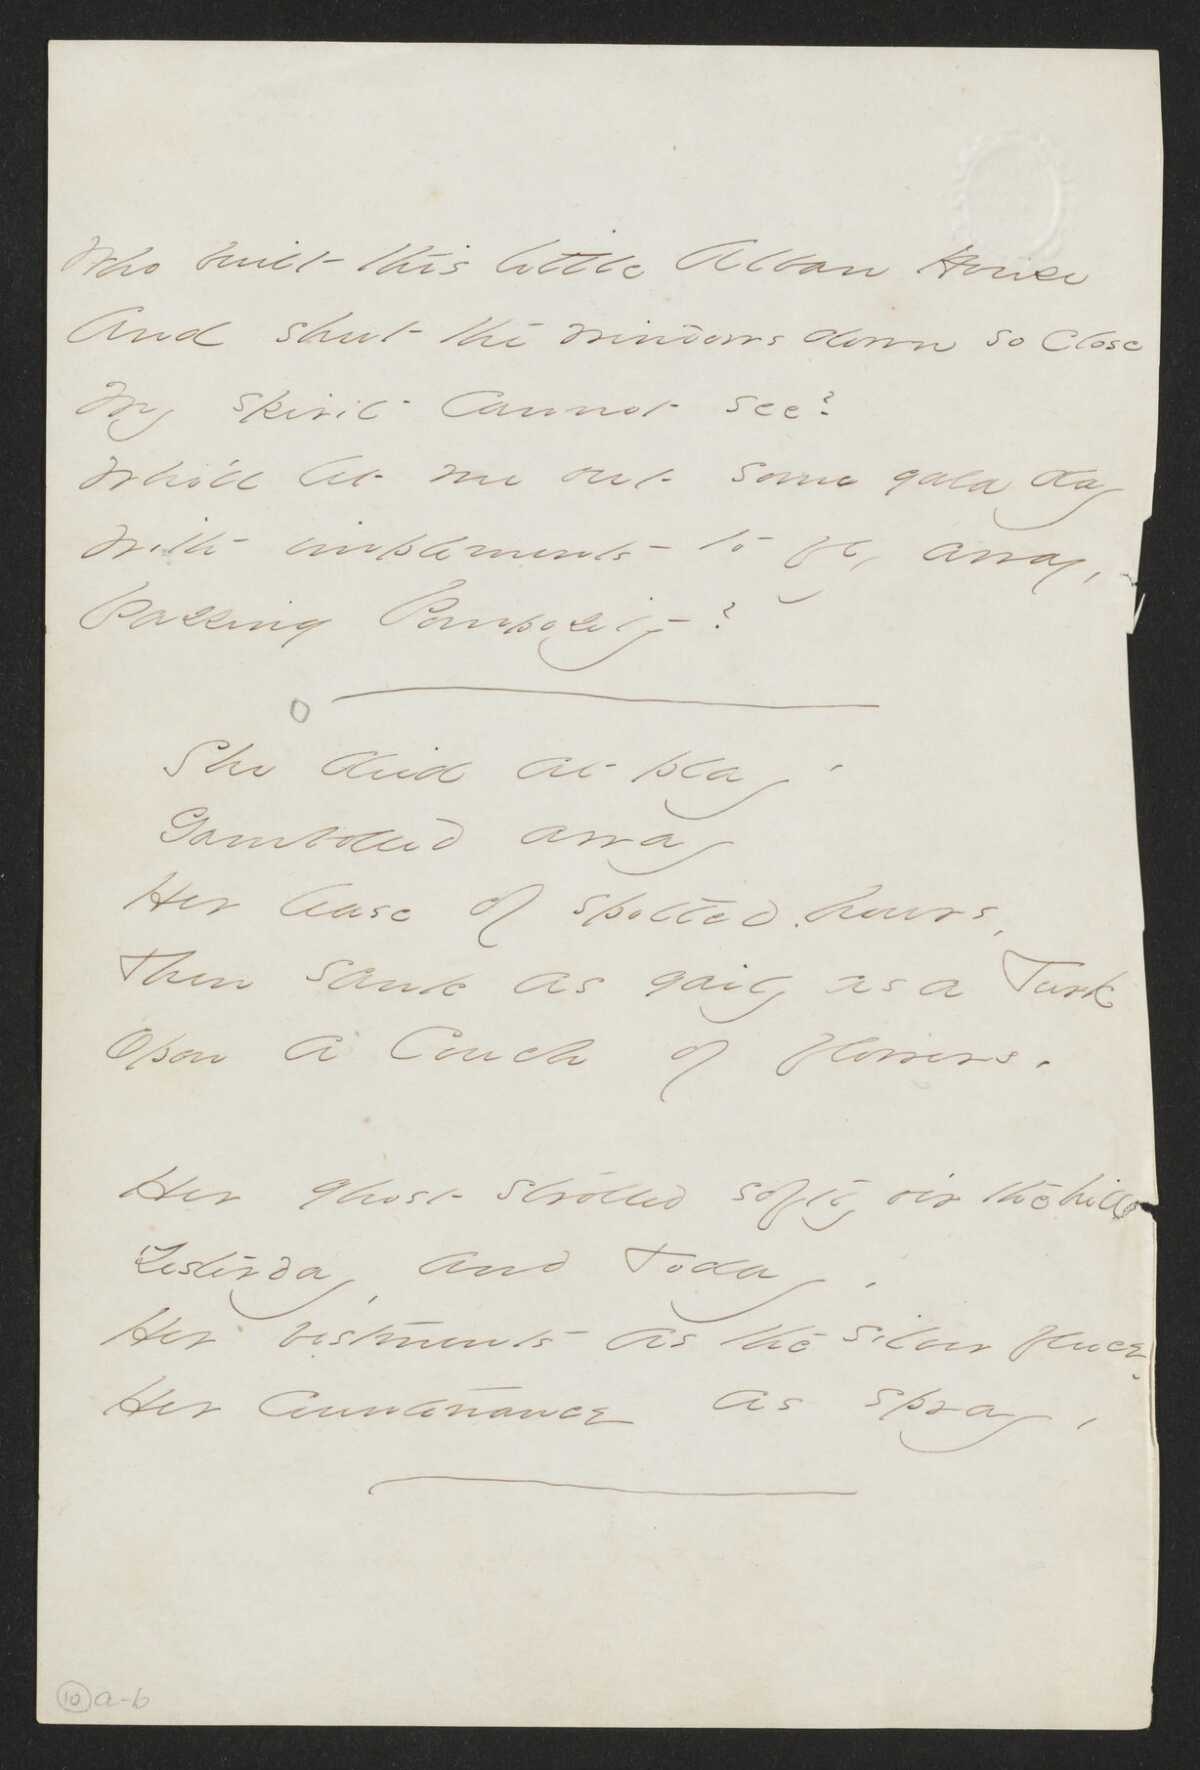 Who built this little Alban House
And shut the windows down so close
My spirit cannot see?
Who'll let me out some gala day
With implements to fly away,
Passing Pomposity?
She died at play,
Gambolled away
Her lease of spotted hours,
Then sank as gaily as a Turk
Upon a Couch of flowers.
Her ghost strolled softly o'er the hill
Yesterday, and Today,
Her vestments as the silver fleece,
Her countenance as spray,
10 a-b